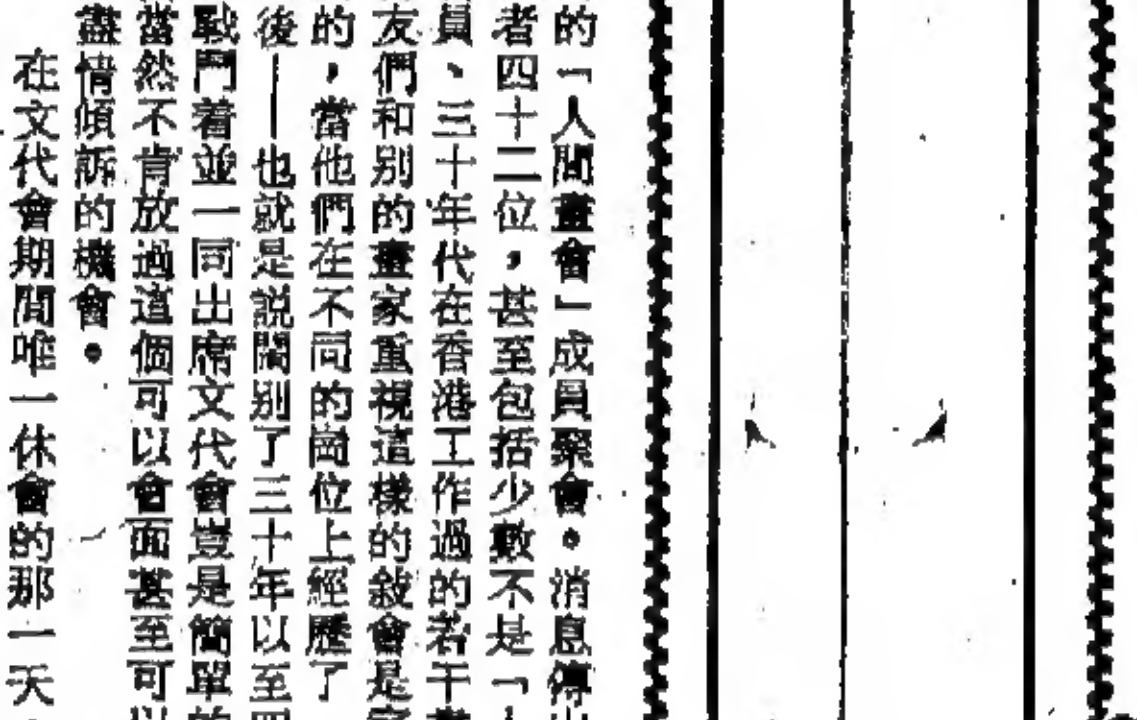 的「人間畫會」成員聚會。消息傳
者四十二位，甚至包括少數不是「
員、三十年代在香港工作過的若干畫
友們和別的畫家重視這樣的敍會是
的，當他們在不同的崗位上經歷了
後——也就是説闊别了三十年以至四
戰鬥着並一同出席文代會豈是簡單的
當然不肯放過這個可以會面甚至可以
盡情傾訴的機會。
在文代會期間唯一休會的那一天